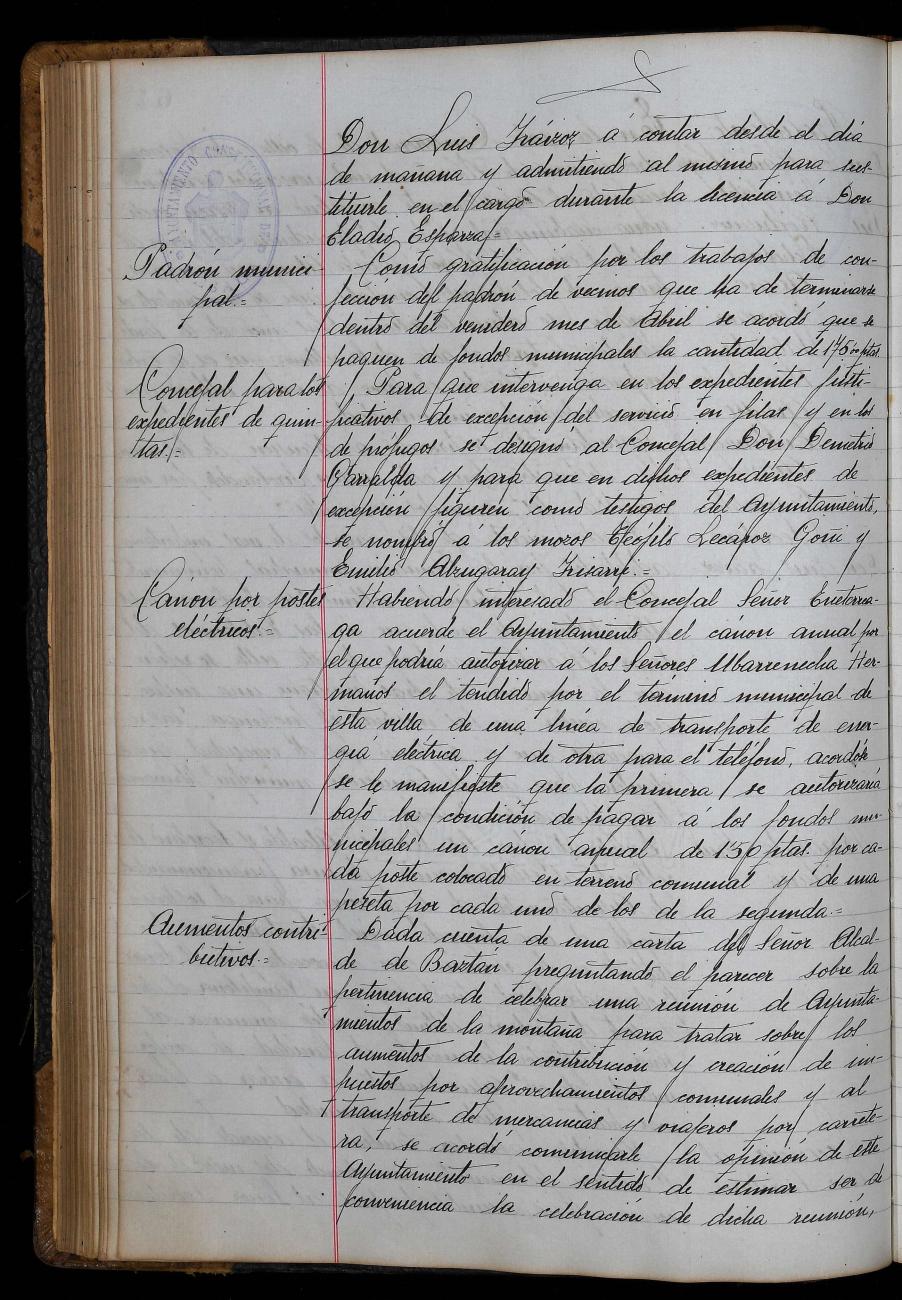 Don Luis Iráizoz á contar desde el día
de mañana y admitiendo al mismo para sus-
tituirle en el cargo durante la licencia á Don
Eladio Esparza.=
Padrón munici-
pal.=
Como gratificación por los trabajos de con-
fección del padrón de vecinos que ha de terminarse
dentro del venidero mes de Abril se acordó que se
paguen de fondos municipales la cantidad de 175'00 ptas.
Concejal para los
expedientes de quin-
tas.=
Para que intervenga en los expedientes justi-
ficativos de excepción del servicio en filas y en los
de prófugos se designó al Concejal Don Demetrio
Garralda y para que en dichos expedientes de
excepción figuren como testigos del Ayuntamiento,
se nombró á los mozos Teófilo Lecároz Goñi y
Emilio Alzugaray Irisarri.=
Cánon por postes
eléctricos.=
Habiendo interesado el Concejal Señor Eneterrea-
ga acuerde el Ayuntamiento el cánon anual por
el que podría autorizar á los Señores Ubarrenecha Her-
manos el tendido por el término municipal de
esta villa de una línea de transporte de ener-
gía eléctrica y de otra para el teléfono, acordóse
se le manifieste que la primera se autorizaría
bajo la condición de pagar á los fondos mu-
nicipales un cánon anual de 1'50 ptas. por ca-
da poste colocado en terreno comunal y de una
peseta por cada uno de los de la segunda.=
Aumentos contri-
butivos.=
Dada cuenta de una carta del Señor Alcal-
de de Baztán preguntando el parecer sobre la
pertinencia de celebrar una reunión de Ayunta-
mientos de la montaña para tratar sobre los
aumentos de la contribución y creación de im-
puestos por aprovechamientos comunales y al
transporte de mercancias y viajeros por carrete-
ra, se acordó comunicarle la opinión de este
Ayuntamiento en el sentido de estimar ser de
conveniencia la celebración de dicha reunión,